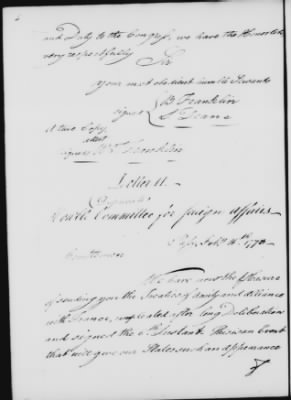 and Duty to the Congress, we have the Honor to be
very respectfully Sir
Your most obedient humble Servants
signed { B Franklin
S Deane
A true Copy
attest
signed Wm T. Franklin
Letter 11.
(Original)
Committee for foreign affairs
Feby 16th 1778
Gentlemen
We have now the
of sending you the Treaties of Amity and alliance
with France, compleated after long deliberation
and signed the 6th Instant. This is an Event
that will give our States such an appearance